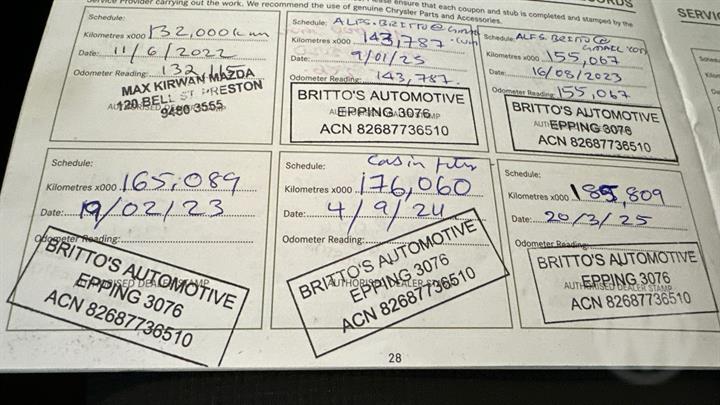 Service Provider carrying out the work. We recommend the use of genuine Chrysler Parts and Accessories.
ensure that each coupon and stub is completed and stamped by the
SERV
Kilometres x000 132,000km
Date: 11/6/2022
Odometer Reading: 132
MAX KIRWAN MAZDA
120 BELL ST PRESTON
9480 3555
Schedule: ALFS.BRITTO@
Kilometres x000 143,787
Date: 9/01/23
Odometer Reading: 143,787.
BRITTO'S AUTOMOTIVE
EPPING 3076
ACN 82687736510
Schedule: ALFS.BRITTO@
Kilometres x000 155,067
Date: 16/08/2023
Odometer Reading: 155,067
BRITTO'S AUTOMOTIVE
EPPING 3076
ACN 82687736510
Schedule:
Kilometres x000 165,089
Date: 19/02/23
Odometer Reading:
BRITTO'S AUTOMOTIVE
EPPING 3076
AUTHORISED DEALER STAMP
ACN 82687736510
Schedule: Cabin
Kilometres x000 176,060
Date: 4/9/24
Odometer Reading:
BRITTO'S AUTOMOTIVE
EPPING 3076
AUTHORISED DEALER STAMP
ACN 82687736510
Schedule:
Kilometres x000 185,809
Date: 20/3/25
Odometer Reading:
BRITTO'S AUTOMOTIVE
EPPING 3076
AUTHORISED DEALER STAMP
ACN 82687736510
28